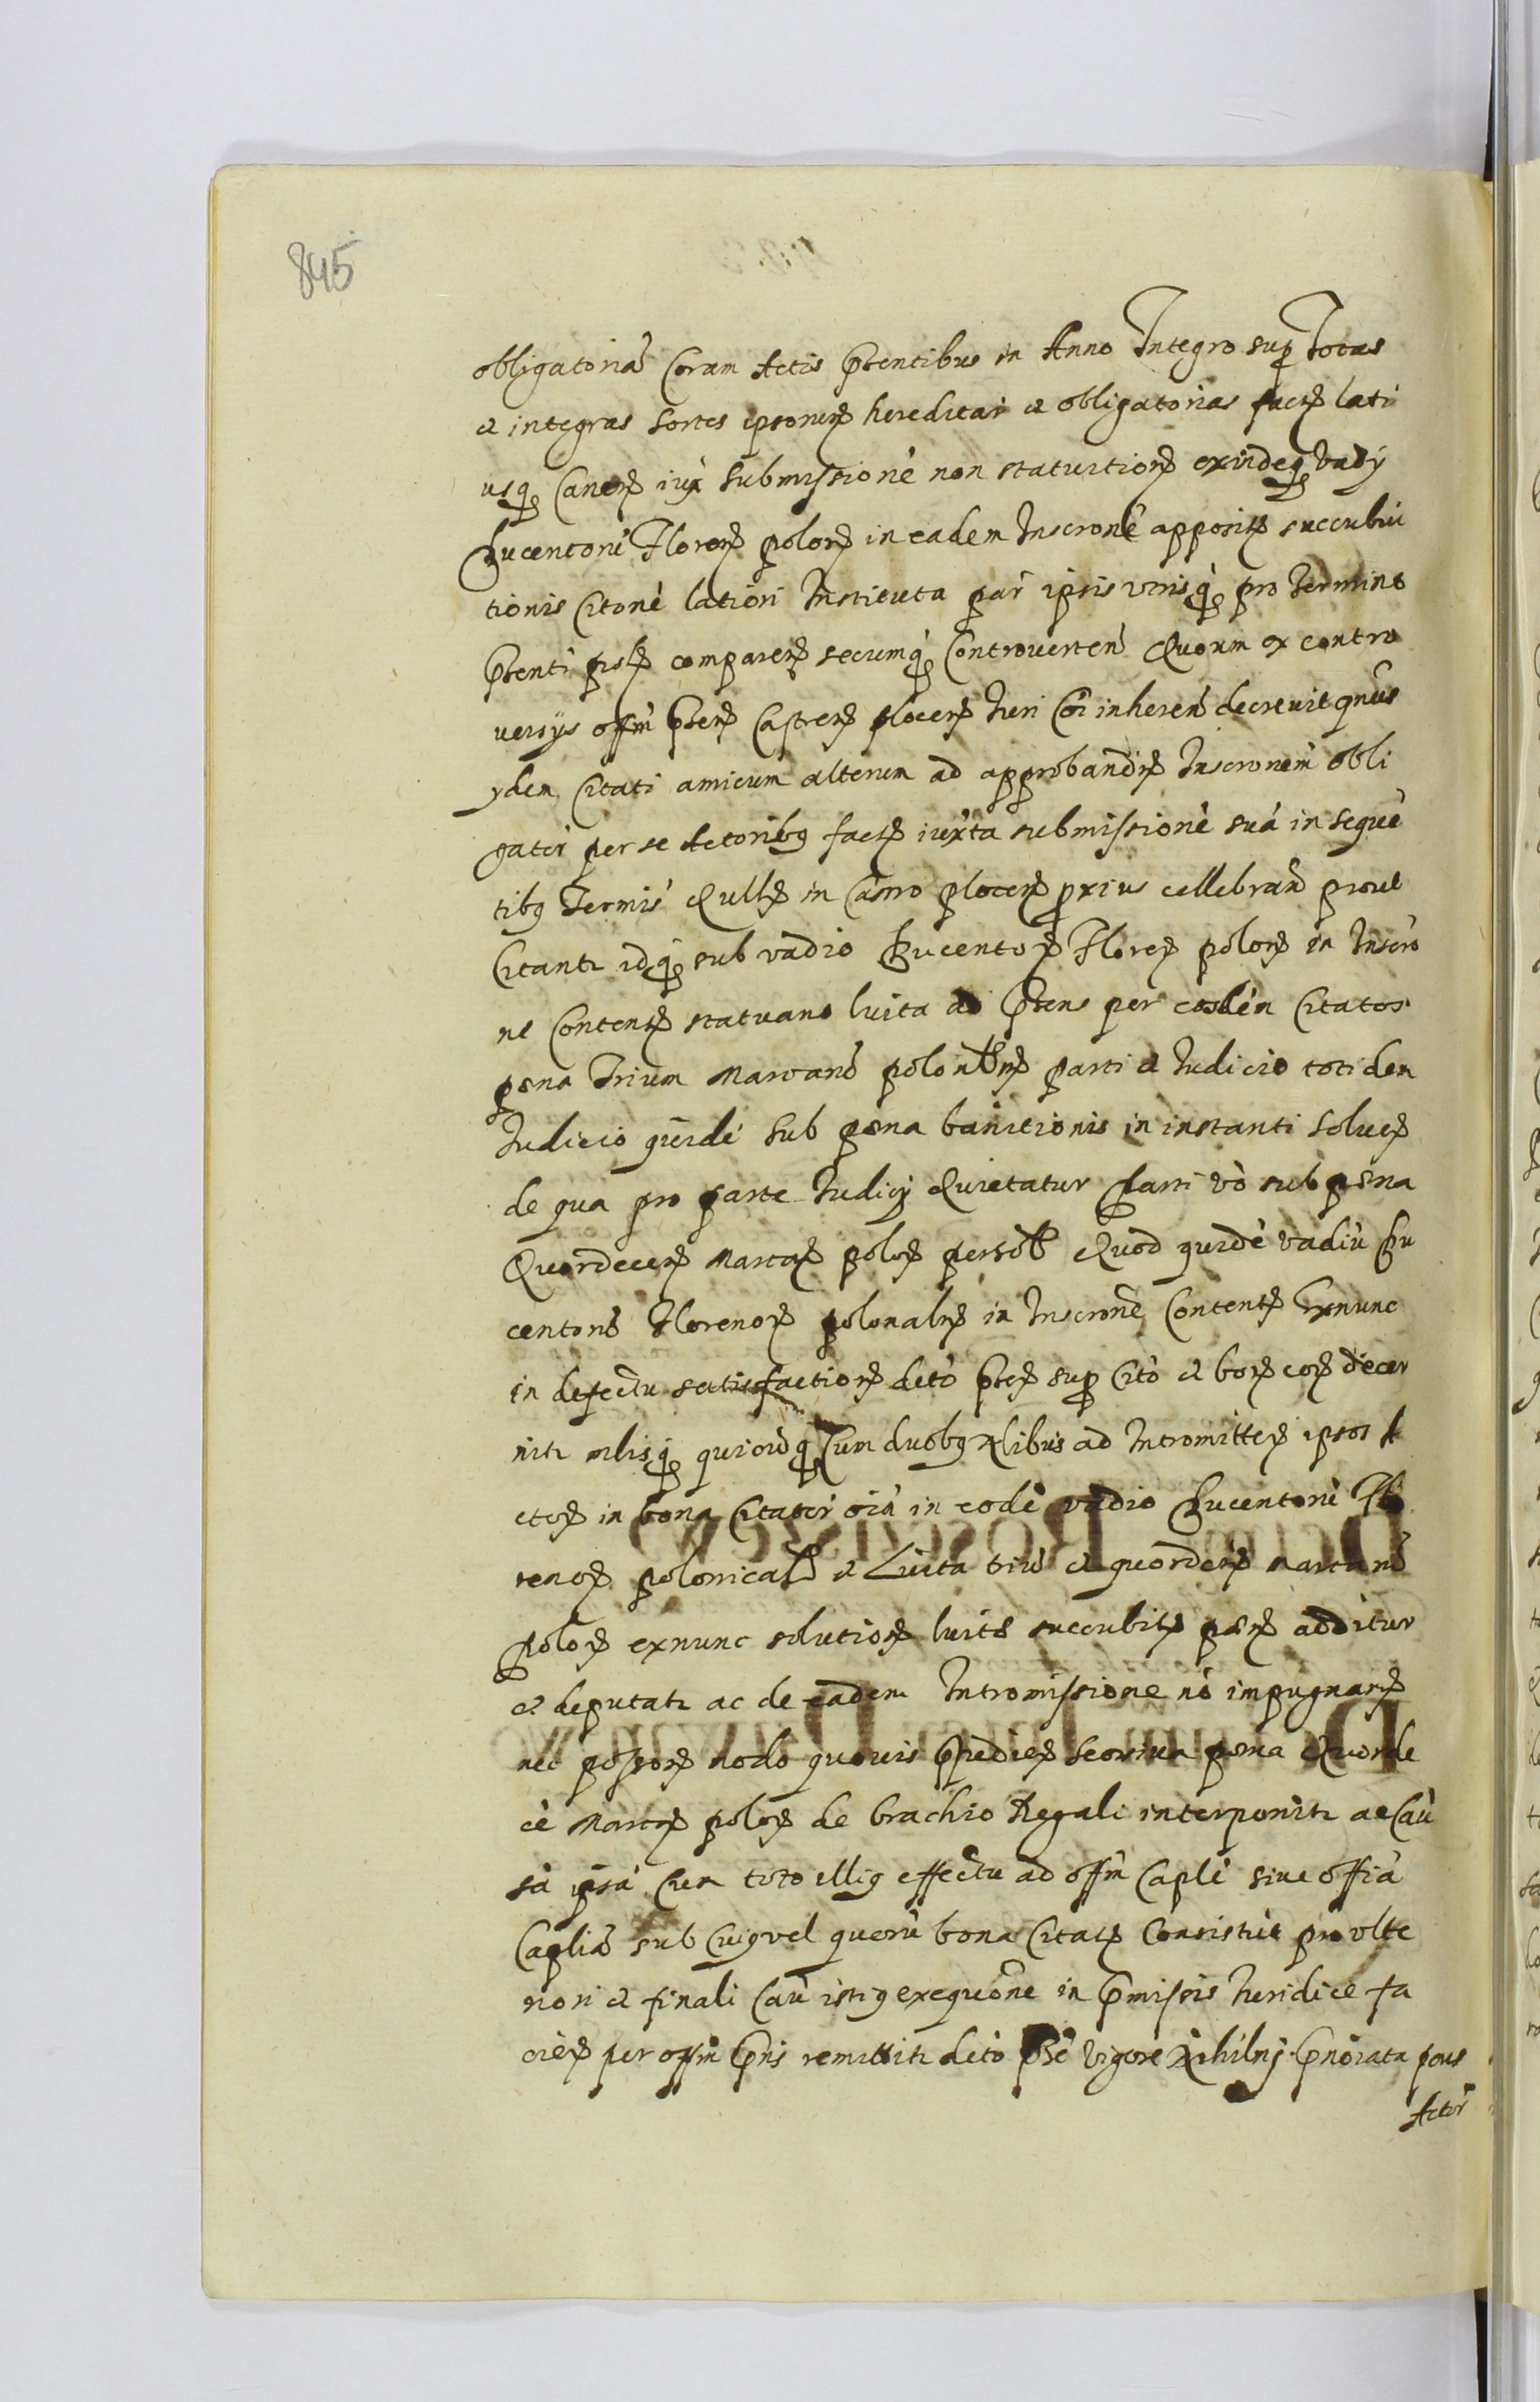 845
obligatoria Coram Actis pntentibus in Anno Integro sup Totas
et integras sortes ipsorum hereditar et obligatorias fact lati
usq Canen iux submissione non statuition exindeq vady
Ducentoru Floren polon in eadem Inscrone apposit succubui
tionis Citone latiori Instituta par ipsis utrisq pro Termino
pnti psl comparen secumq Controverten Quorum ex contro
versys offm pnten Castren plocen Iuri Coi inheren decrevit qnus
ydem Citati amicum alterum ad approbandu Inscronem obli
gator per se Actoribq fact iuxta submissione sua in seque
tibq Termis Qull in Castro plocen proxius cellebran prout
Citantr idq sub vadio Ducentor Floren polon in Inscro
ne Content statuant luita ad pntens per eosdem Citatos
pena Trium Marcaru polonlm parti et Iudicio totidem
Iudicio quide sub pena banitionis in instanti soluen
de qua pro parte Iudicy Quietatur parti vo sub pena
Quordecem Marcar polon persol Quod quide vadiu Du
centoru Florenor polonalm in Inscrone Content Exnunc
in defectu satisfaction deto pnten sup Cito et bon eor decer
nitr mlisq quicudq Cum duobq xlibus ad Intromitten ipsos A
ctor in bona Citator oia in eode vadio Ducentoru Flo
renor polonical et Luita triu et quordecem Marcaru
polon exnunc solution luite succubit pen additur
et deputatr ac de eadem Intromissione no impugnan
nec possor modo quovis predict seorsiva pena Quorde
ce Marcar polon de brachio Regali interponitr ac Cau
sa ipsa Cum toto illiq effectu ad offm Caple sive offia
Caplia sub Cuiq vel quoru bona Citat Consistut pro ulte
riori et finali Cau istiq exequone in pmissis Iuridice fa
cien per offm pns remittitr deto pnte vigore Nihilnq pnoiata pars
Actor